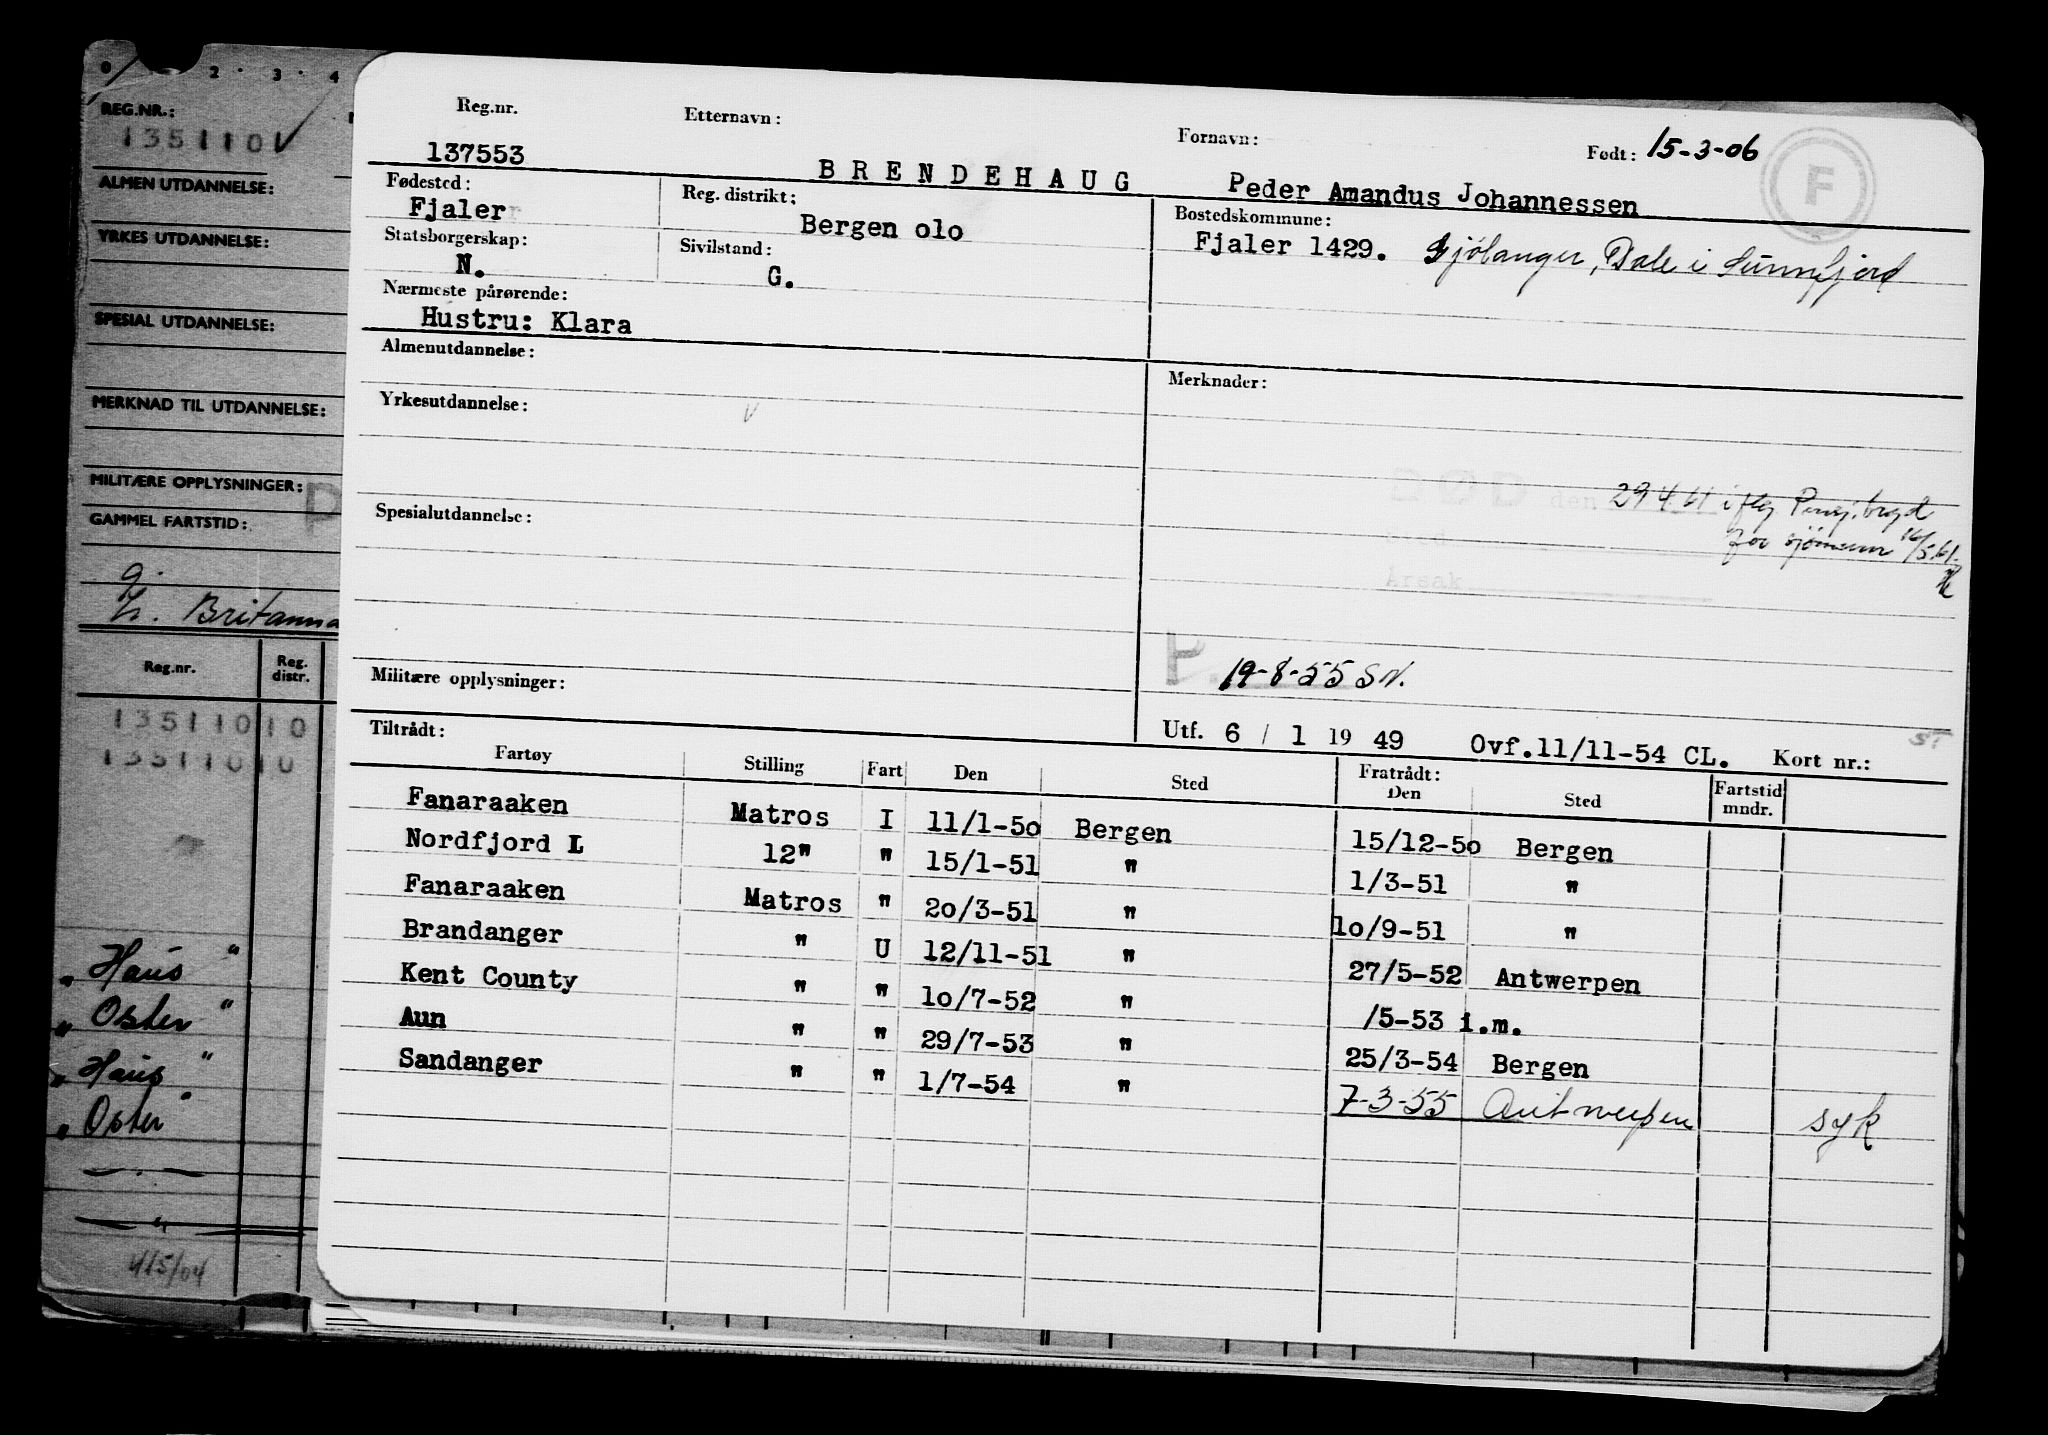 0 2 · 3 · 4
REG.NR.:
135110
ALMEN UTDANNELSE:
YRKES UTDANNELSE:
SPESIAL UTDANNELSE:
MERKNAD TIL UTDANNELSE:
MILITÆRE OPPLYSNINGER:
GAMMEL FARTSTID:
P
Britannia
Reg.nr. Reg. distr.
135110 10
135110 10
" Haus "
" Oster "
" Haus "
" Oster "
415/04
Reg.nr. Etternavn: Fornavn: Født: 15-3-06
F
137553 BRENDEHAUG Peder Amandus Johannessen
Fødested: Reg. distrikt: Bostedskommune:
Fjaler Bergen olo Fjaler 1429. Gjølanger, Dale i Sunnfjord
Statsborgerskap: Sivilstand:
N. G.
Nærmeste pårørende:
Hustru: Klara
Almenutdannelse: Merknader:
Yrkesutdannelse:
DØD den 29 4 61 iflg Pensj.
Spesialutdannelse: for sjømenn 16/5.61.
Årsak
P. 19-8-55 SN.
Militære opplysninger:
Utf. 6 / 1 19 49 Ovf.11/11-54 CL. Kort nr.: ST
Tiltrådt: Fratrådt:
Fartøy Stilling Fart Den Sted Den Sted Fartstid mndr.
Fanaraaken Matros I 11/1-5o Bergen 15/12-5o Bergen
Nordfjord L 12" " 15/1-51 " 1/3-51 "
Fanaraaken Matros " 2o/3-51 " 1o/9-51 "
Brandanger " U 12/11-51 " 27/5-52 Antwerpen
Kent County " " 1o/7-52 " /5-53 i.m.
Aun " " 29/7-53 " 25/3-54 Bergen
Sandanger " " 1/7-54 " 7-3-55 Antwerpen syk